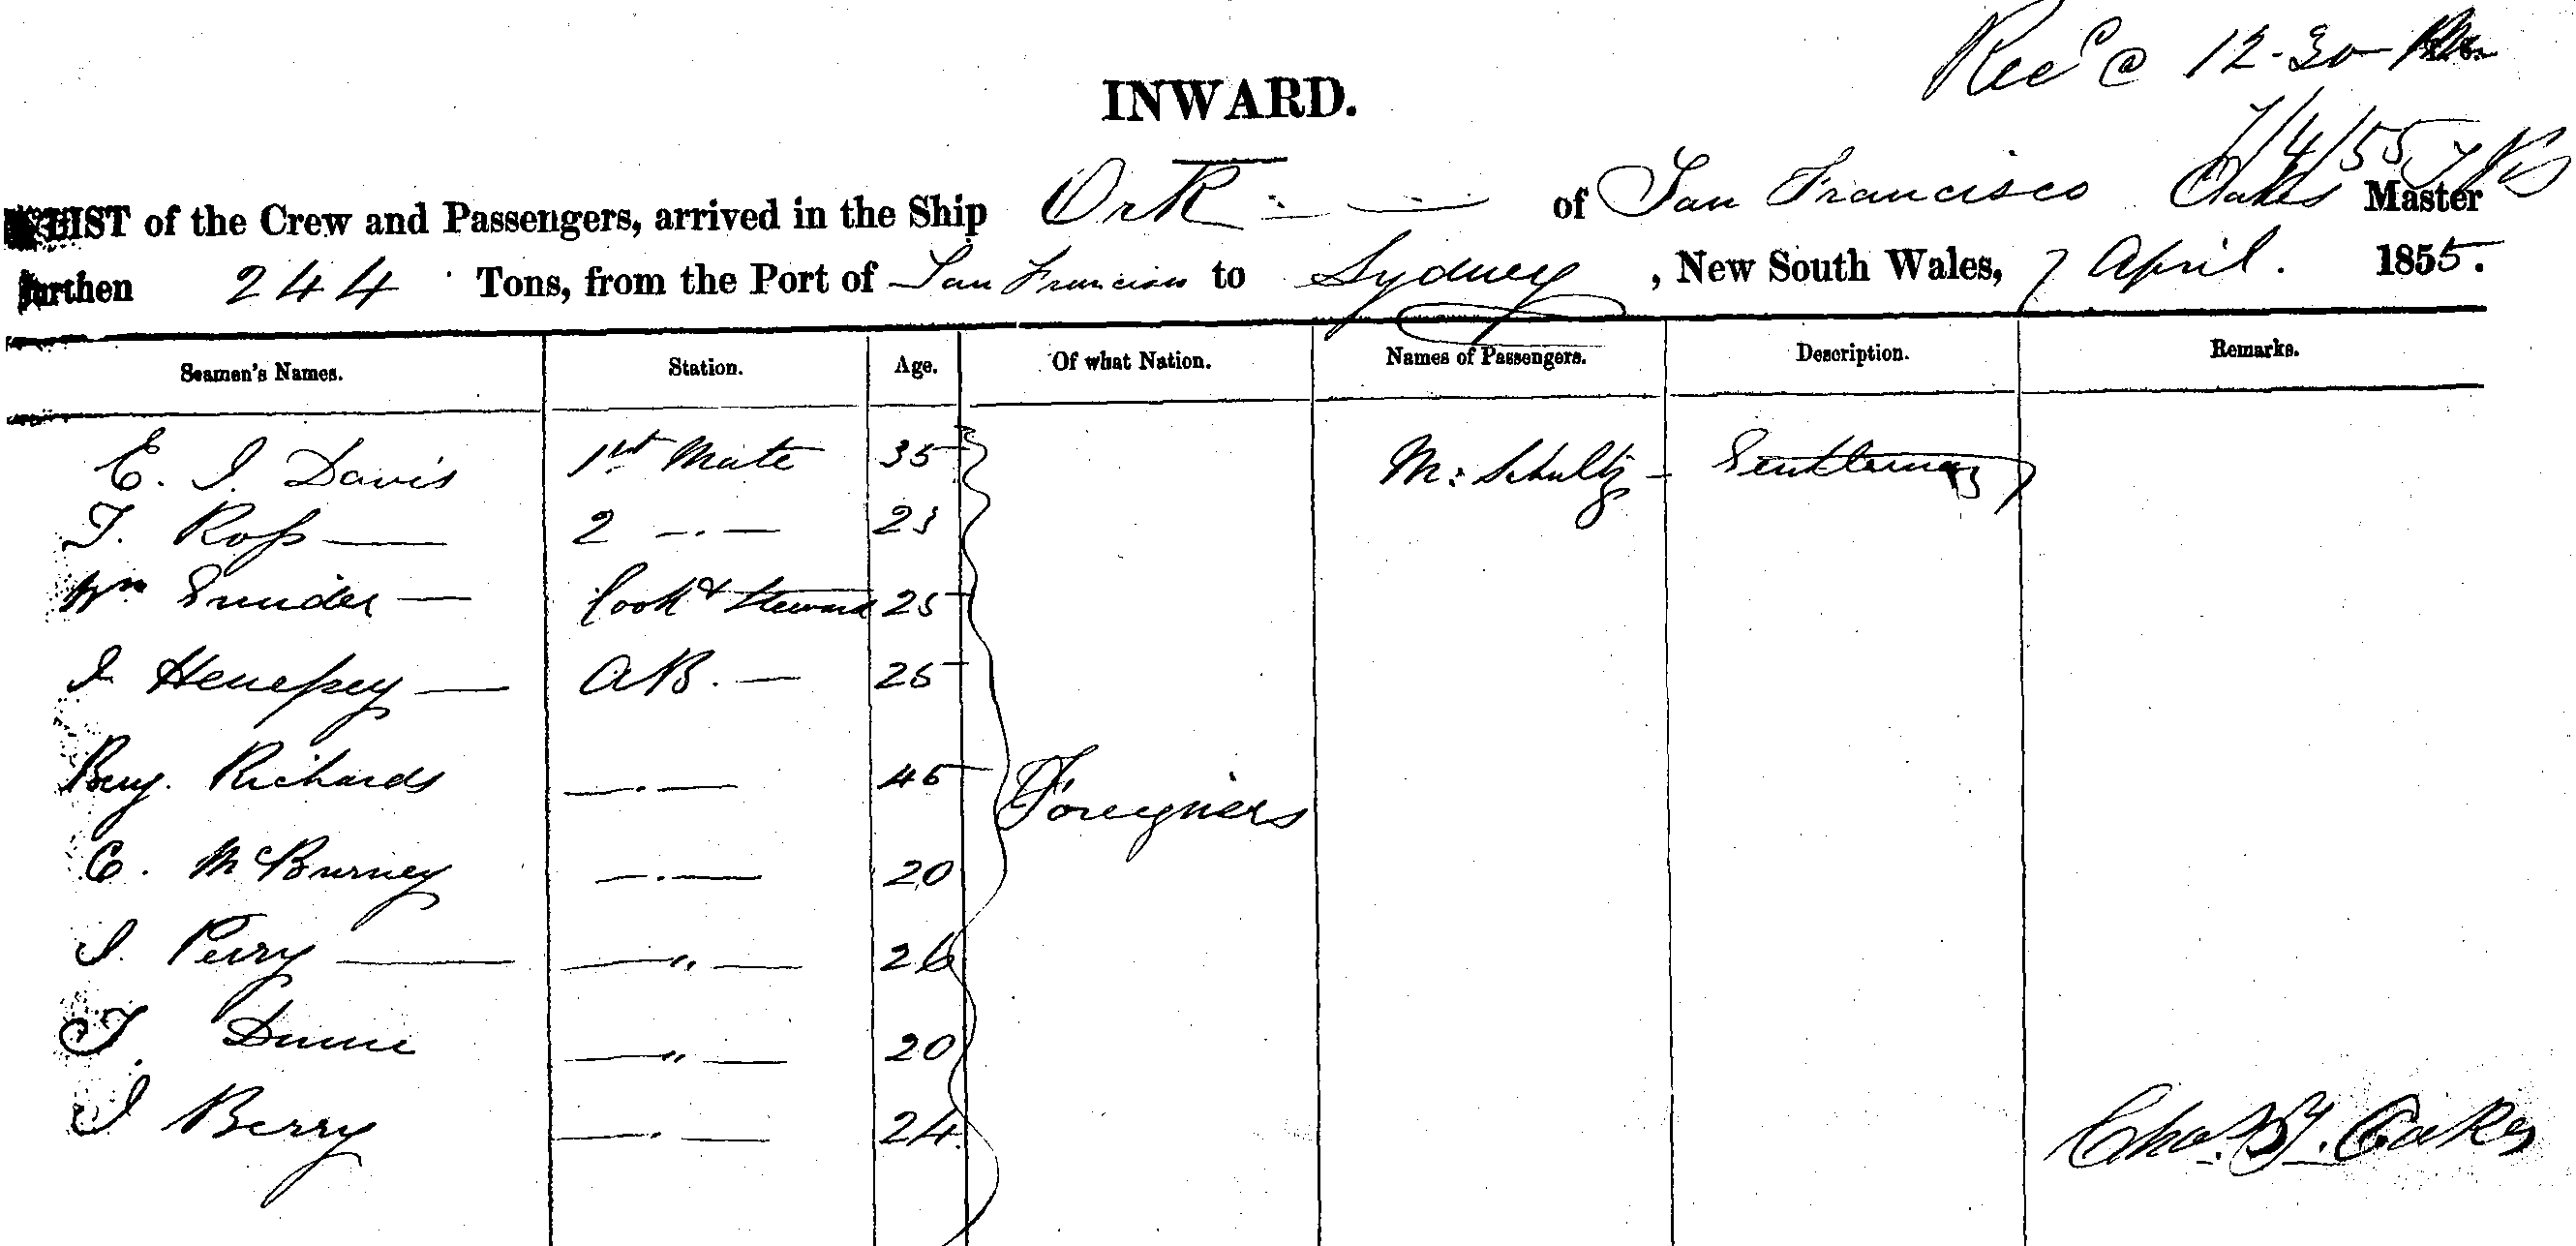 Recd @ 12.30 Pm
7/4/55
INWARD.
LIST of the Crew and Passengers, arrived in the Ship Ork of San Francisco Oakes Master
Burthen 244 Tons, from the Port of San Francisco to Sydney, New South Wales, 7 April. 1855.
Seamen's Names. Station. Age. Of what Nation. Names of Passengers. Description. Remarks.
E. J. Davis 1st Mate 35 Mr Schultz - Gentleman
T. Ross — 2 -.- 23
Wm — Cook & Steward 25
J — AB. — 25
Benj. Richards —.— 45 Foreigners
C. McBurney —.— 20
J. Perry — —"— 26
T. Dunne —"— 20
J Berry —.— 24
Chas. Oakes